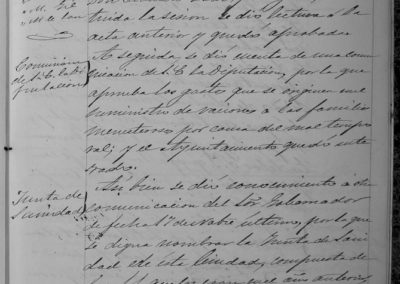 tuida la sesion se dió lectura á la
acta anterior y quedó aprobada
A seguida se dió cuenta de una comu-
nicacion de la E. la Diputacion, por la que
aprueba los gastos que se originen en el
suministro de raciones a las familias
menesterosas por causa del mal tempo-
ral; y el Ayuntamiento quedó ente-
rado.
Comision
Junta de
Sanidad
Asi bien se dió conocimiento á otra
comunicacion del Sor Gobernador
de fecha 17 de Nobre último, por la que
se digna nombrar la Junta de Sani-
dad de esta Ciudad, compuesta de